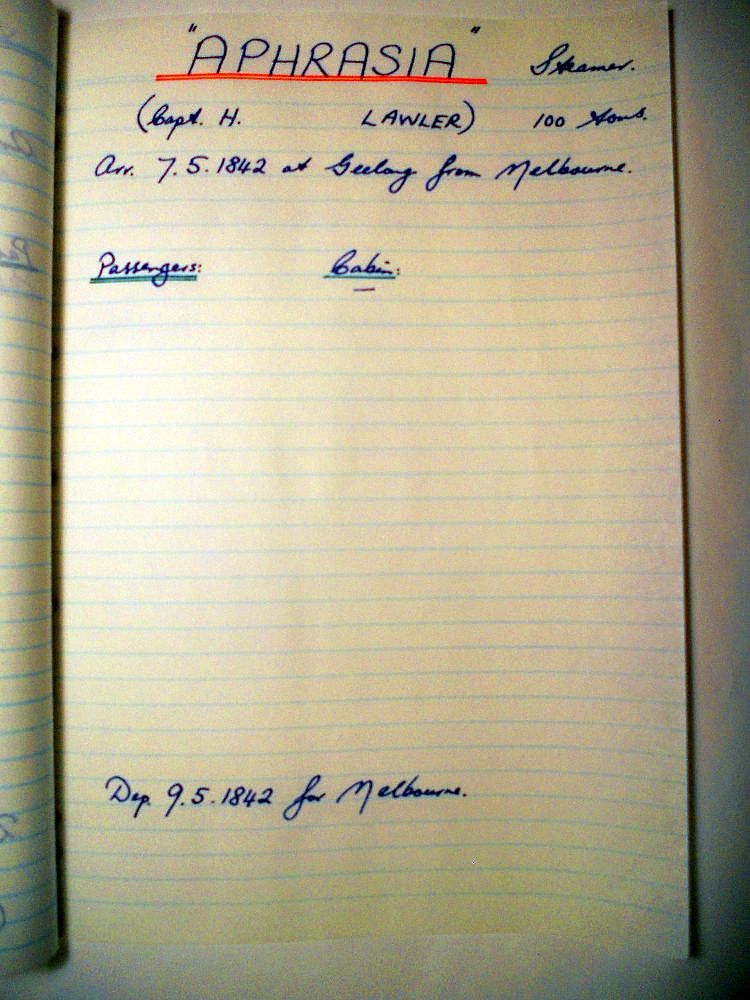 "APHRASIA" Steamer.
(Capt. H. LAWLER) 100 tons.
Arr. 7.5.1842 at Geelong from Melbourne.
Passengers: Cabin:
—
Dep. 9.5.1842 for Melbourne.